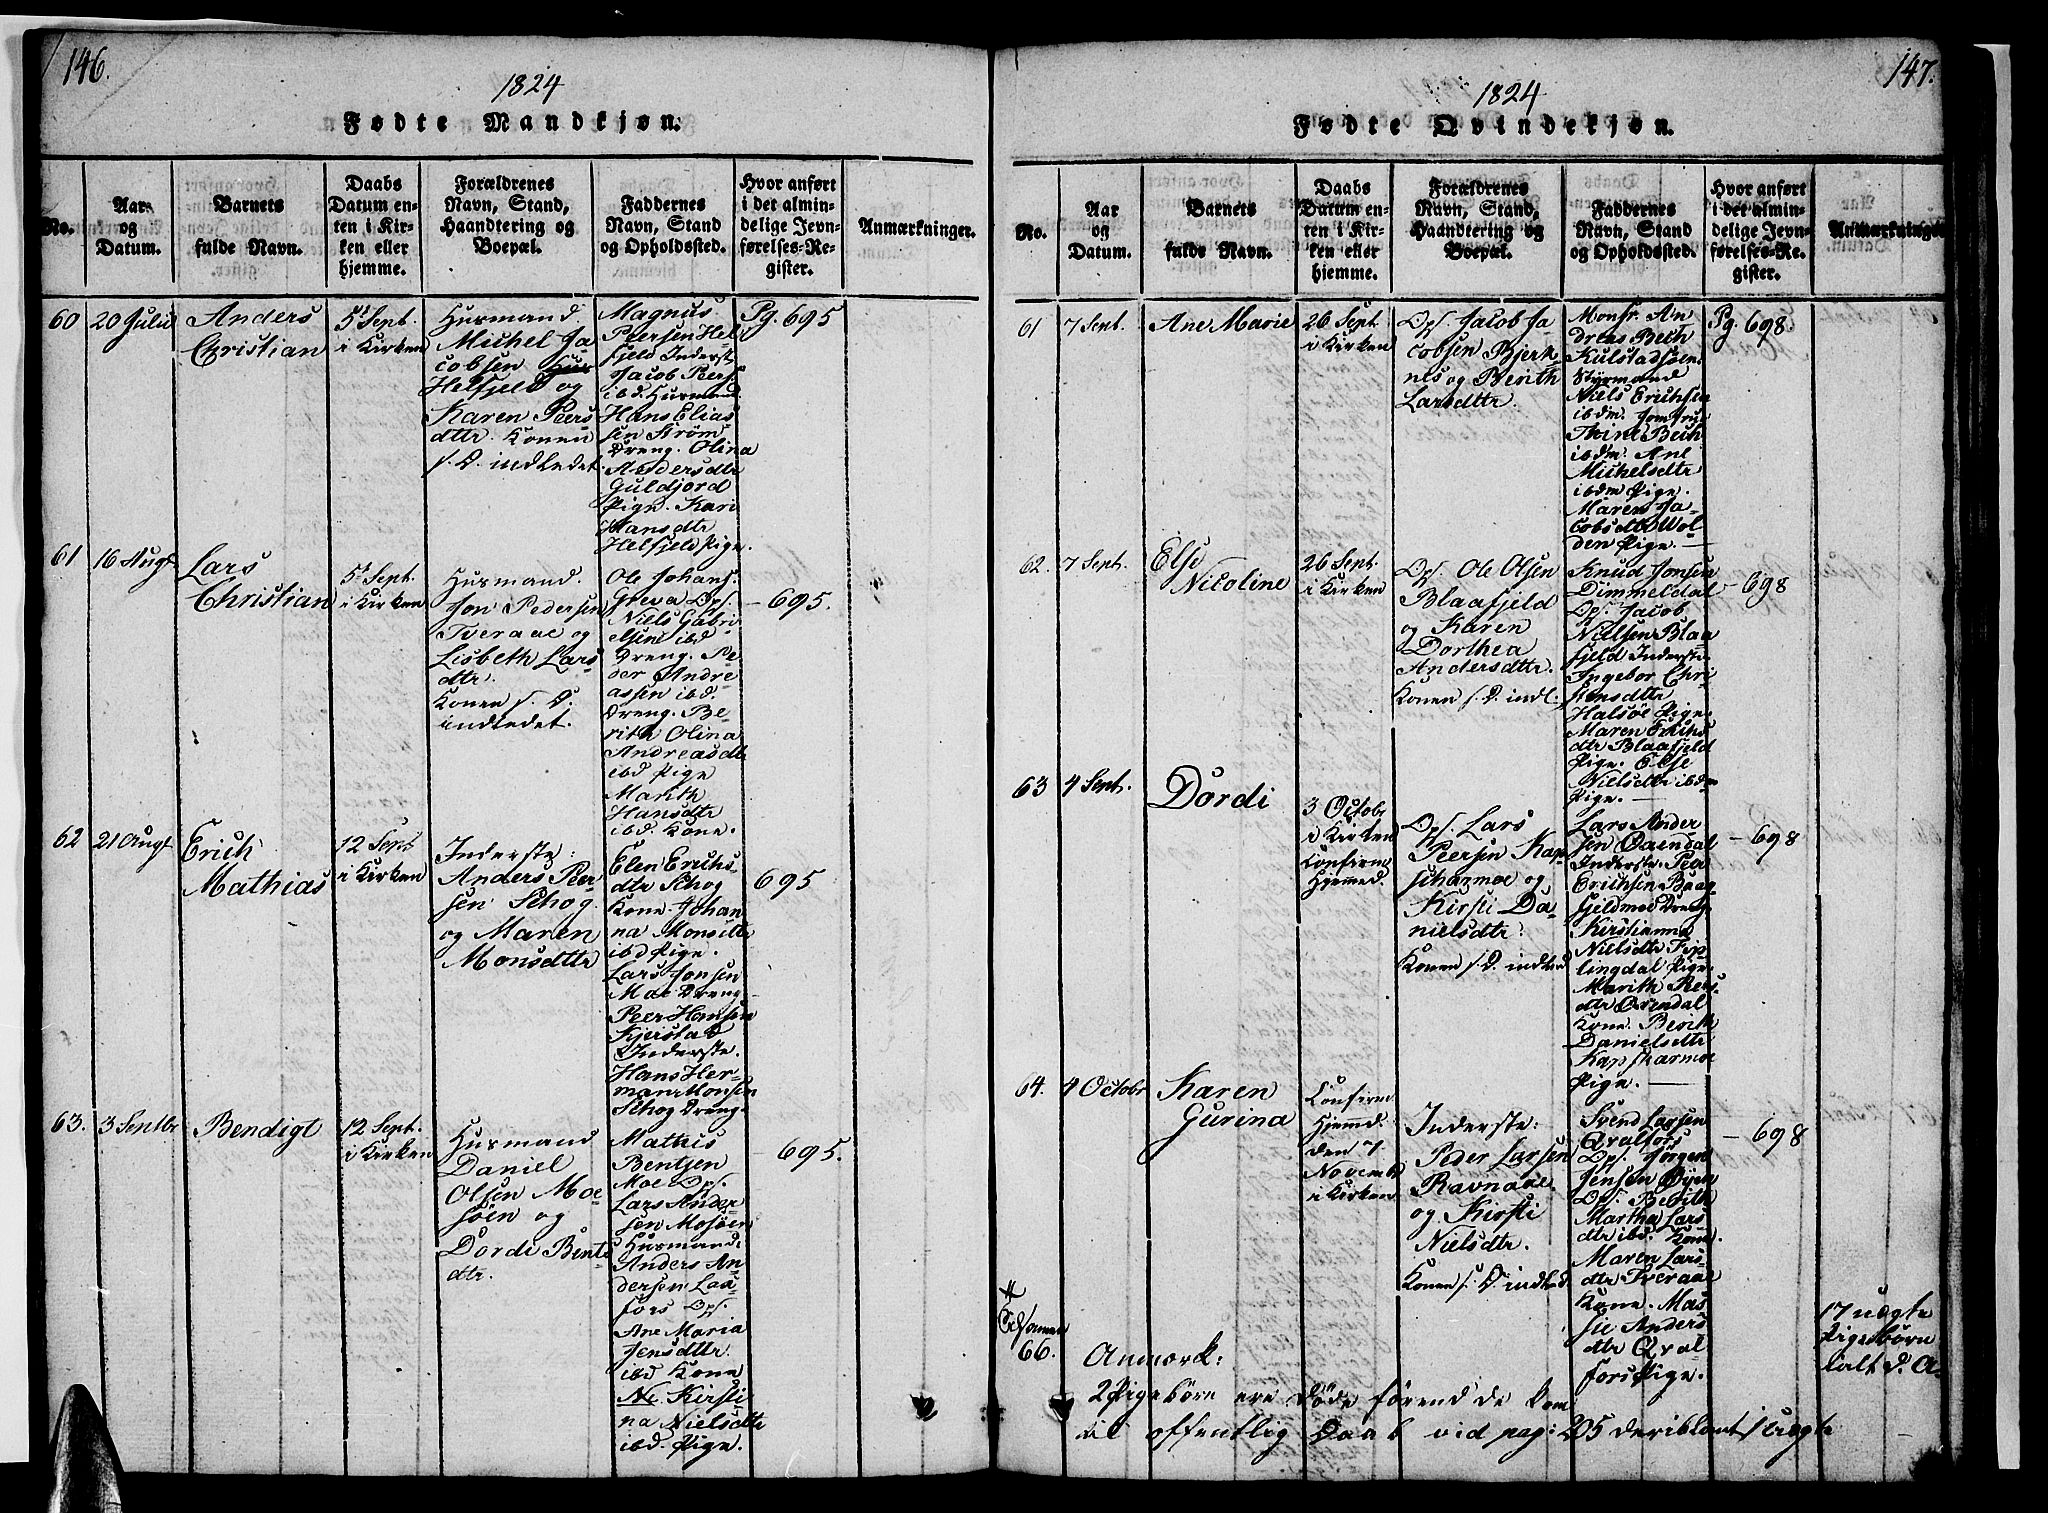 146.
1824
Fødte Mandkjøn.
No.
Aar
og
Datum.
Barnets
fulde Navn.
Daabs
Datum en-
ten i Kir-
ken eller
hjemme.
Forældrenes
Navn, Stand,
Haandtering og
Boepæl.
Faddernes
Navn, Stand
og Opholdssted.
Hvor anført
i det almin-
delige Jevn-
førelses-Re-
gister.
Anmærkninger.
60
20 Julii
Anders
Christian
5t Sept.
i Kirken
Husmand
Michel Ja
cobsen
Helfjeld og
Karen Peers
dttr. Konen
s. D. indledet.
Magnus
Peersen Hel-
fjeld Inderst
Jacob Peers.
ibd. Husmand.
Hans Elias
sen Strøm
Dreng. Olina
Andersdttr
Guldjord
Pige. Kari
Hansdttr
Helfjeld Pige.
Pg. 695
61
16 Augt
Lars
Christian
5t Sept.
i Kirken
Husmand.
Jon Pedersen
Tveraae og
Lisbeth Lars
dttr.
Konen s. D.
indledet.
Ole Johans.
Greva Ops.
Niels Gabri-
elsen ibd
Dreng. Pe-
der Andre-
assen ibd.
Dreng. Be-
rith Olina
Andreasdtr
ibd Pige
Marith
Hansdttr
ibd. Kone.
- 695.
62
21 Augt
Erich
Mathias
12 Sept
i Kirken
Inderste:
Anders Peer-
sen Schog
og Maren
Monsdttr
Elen Erichs-
dttr Schog
Kone. Johan
na Monsdttr
ibd Pige.
Lars Jonsen
Moe Dreng.
Peer Hansen
Kjerstad
Inderste.
Hans Her-
man Monsen
Schog Dreng.
695
63.
3 Septbr
Bendigt
12 Sept.
i Kirken
Husmand
Daniel
Olsen Moe
søen og
Dordi Bents
dtr.
Mathis
Bentsen
Moe Ops.
Lars Ander-
sen Mosøen
Husmand.
Anders An-
dersen Laa-
fors Ops.
Ane Maria
Jensdttr
ibd Kone
Ne Kirsti-
na Nielsdttr
ibd. Pige.
- 695.
147.
1824
Fødte Qvindekjøn.
No.
Aar
og
Datum.
Barnets
fulde Navn.
Daabs
Datum en-
ten i Kir-
ken eller
hjemme.
Forældrenes
Navn, Stand,
Haandtering og
Boepæl.
Faddernes
Navn, Stand
og Opholdssted.
Hvor anført
i det almin-
delige Jevn-
førelses-Re-
gister.
Anmærkninger
61
7 Sept.
Ane Marie
26 Sept
i Kirken
Ops. Jacob Ja
cobsen Bjerk-
nes og Berith
Larsdttr.
Monsr. An
dreas Bech
Kulstadsøen.
Styrmand
Niels Erichsen
ibdm. Jomfrue
Thine Bech
ibdm. Ane
Michelsdttr
ibdm Pige.
Maren Ja-
cobsdttr Wol
den Pige.
Pg. 698
62.
7 Sept.
Else
Nicoline
26 Sept.
i Kirken
Ops. Ole Olsen
Blaafjeld
og Karen
Dorthea
Andersdttr.
Konen s. D. indl.
Knud Jonsen
Dimmeldal
Ops. Jacob
Nielsen Blaa
fjeld Inderste.
Ingebor Chri
stensdttr
Halsøe Pige.
Maren Erichs
dttr Blaafjeld
Pige. Else
Nielsdttr ibdm
Pige.
- 698
63
4 Sept.
Dordi
3 Octobr
i Kirken
Confirm
Hjemmed.
Ops. Lars
Peersen Kap
skarmoe og
Kirsti Da-
nielsdtr.
Konen s. D. indled
Lars Ander
sen Øxendal
Inderste. Peer
Erichsen Baag
fjeldmoe Dreng.
Kirstianna
Nielsdttr Fip-
lingdal Pige.
Marith Peers-
dttr Øxendal
Kone. Berith
Danielsdttr
Kapskarmoe
Pige.
- 698
64.
4 Octobr
Karen
Gurina
Confirm
Hjemmd.
den 7
Novemb
i Kirken
Inderste:
Peder Larsen
Ravnaae
og Kirsti
Nielsdtr.
Konen s. D. indled
Svend Larsen
Qvalfors
Ops. Jørgen
Jensen Øyen
Ops. Berith
Martha Lars
dttr ibd. Kone.
Maren Lars-
dttr Tveraae
Kone. Mas-
sie Anders
dttr Qval
fors Pige.
- 698
66.
17 uægte
Pigebørn
ialt d. A.
Anmærk:
2 Pigebørn ere døde førend de kom
til offentlig Daab vid pag: 205 deriblant 1 uægte